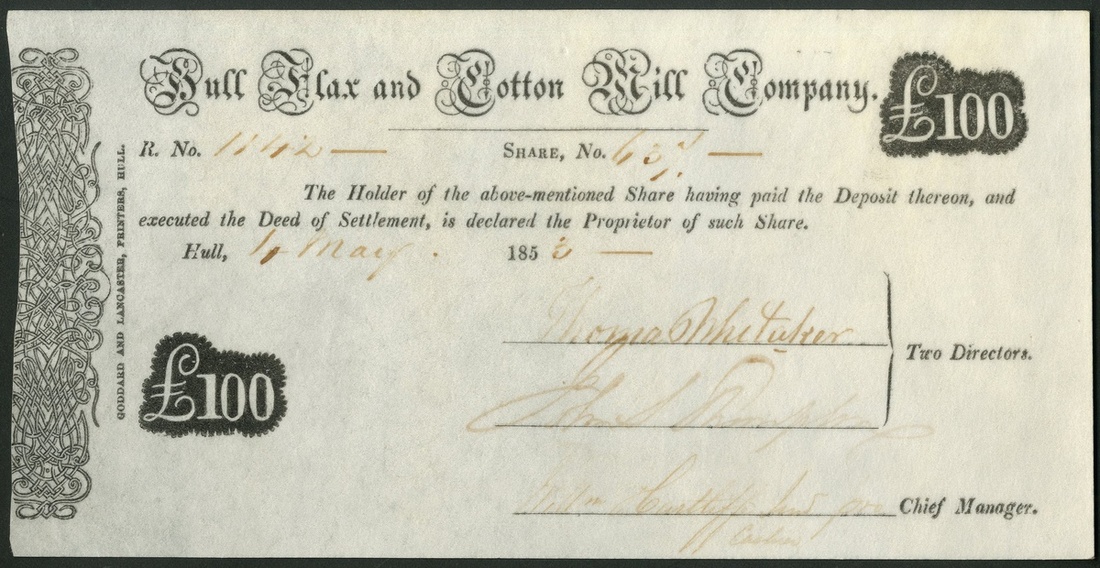 Hull Flax and Cotton Mill Company.
£100
R. No. 1142 — SHARE, No. —
The Holder of the above-mentioned Share having paid the Deposit thereon, and
executed the Deed of Settlement, is declared the Proprietor of such Share.
Hull, May. 1853 —
Thomas Whitaker
Two Directors.
John S Thompson
£100
Chief Manager.
GODDARD AND LANCASTER, PRINTERS, HULL.